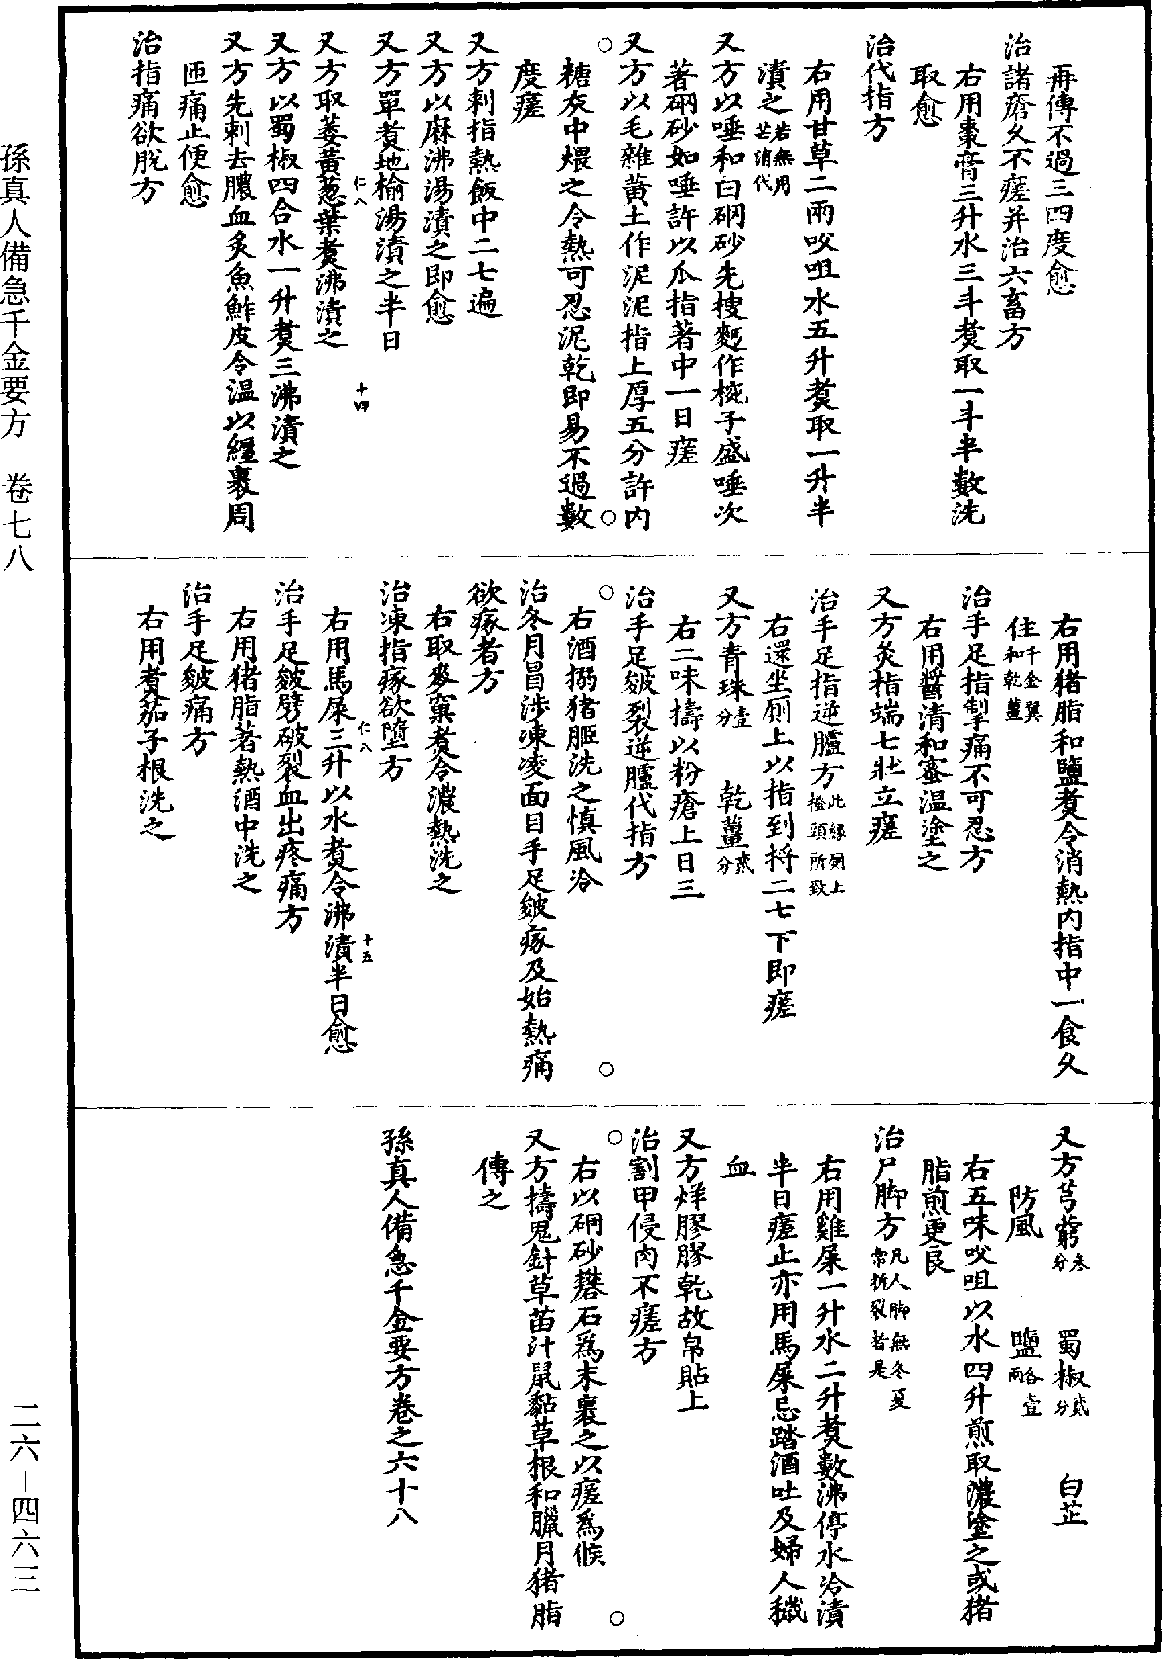 再傅不過三四度愈
治諸瘡久不瘥并治六畜方
右用棗膏三升水三斗煑取一斗半數洗
取愈
治代指方
右用甘草二兩㕮咀水五升煑取一升半
漬之若無用芒消代
又方以唾和白硇砂先搜麪作梡子盛唾次
著硇砂如唾許以爪指著中一日瘥
又方以毛雜黃土作泥泥指上厚五分許内
糖灰中煨之令熱可忍泥乾即易不過數
度瘥
又方刺指熱飯中二七遍
又方以麻沸湯漬之即愈
又方單煑地榆湯漬之半日
仁八 十四
又方取萎黃葱葉煑沸漬之
又方以蜀椒四合水一升煑三沸漬之
又方先刺去膿血炙魚鮓皮令温以纏裹周
匝痛止便愈
治指痛欲脫方
右用猪脂和鹽煑令消熱内指中一食久
住千金翼和乾薑
治手足指掣痛不可忍方
右用醬清和蜜温塗之
又方灸指端七壯立瘥
治手足指逆臚方此緣厠上搔頭所致
右還坐厠上以指到捋二七下即瘥
又方青珠壹分 乾薑貳分
右二味擣以粉瘡上日三
治手足皴裂逆臚代指方
右酒搦猪胵洗之慎風冷
治冬月冒涉凍凌面目手足皴瘃及始熱痛
欲瘃者方
右取麥窠煑令濃熱洗之
治凍指瘃欲墮方
仁八 十五
右用馬屎三升以水煑令沸漬半日愈
治手足皴劈破裂血出疼痛方
右用猪脂著熱酒中洗之
治手足皴痛方
右用煑茄子根洗之
又方芎藭叁分 蜀椒貳分 白芷
防風 鹽各壹兩
右五味㕮咀以水四升煎取濃塗之或猪
脂煎更良
治尸脚方凡人脚無冬夏常拆裂者是
右用雞屎一升水二升煑數沸停水冷漬
半日瘥止亦用馬屎忌踏酒吐及婦人穢
血
又方烊膠膠乾故帛貼上
治割甲侵肉不瘥方
右以硇砂礬石爲末裹之以瘥爲候
又方擣鬼針草苗汁鼠黏草根和臘月猪脂
傅之
孫真人備急千金要方卷之六十八
孫真人備急千金要方 卷七八
二六—四六三